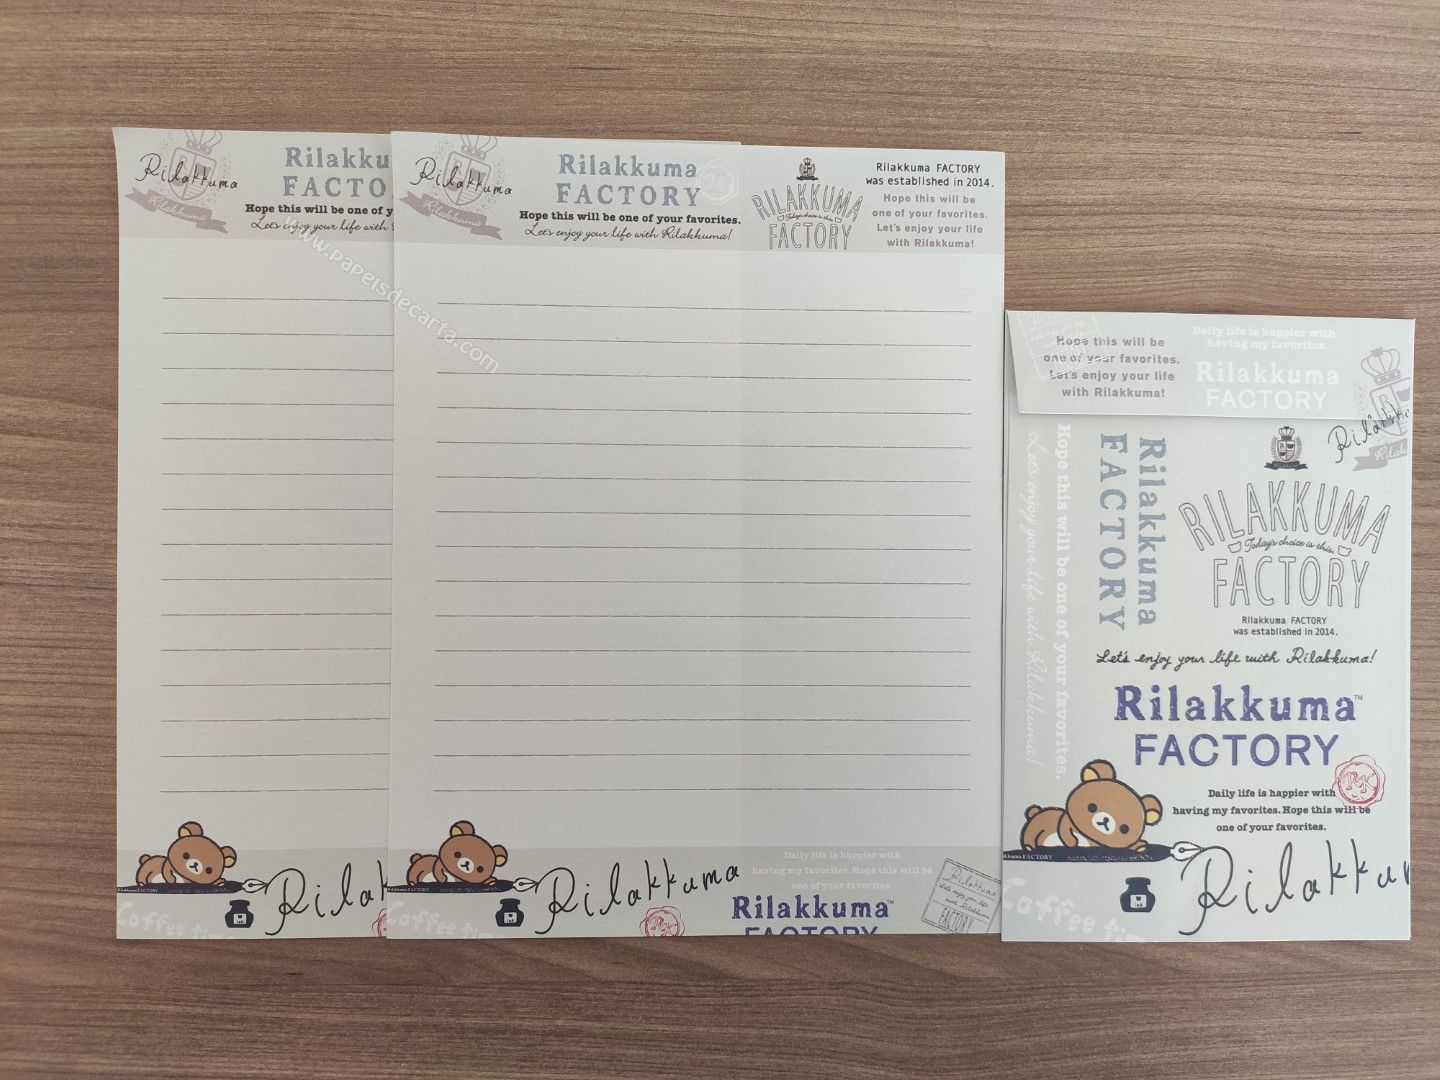 Rilakkuma
Rilakkuma
Rilakku
FACTO
Hope this will be one of y
Let's enjoy your life with
Rilakku
FACTORY
Coffee tim
Rilakk
ink
www.papeisdecarta.com
Rilakkuma
Rilakkuma
Rilakkuma
FACTORY
Hope this will be one of your favorites.
Let's enjoy your life with Rilakkuma!
RILAKKUMA
Today's choice is this.
FACTORY
Rilakkuma FACTORY
was established in 2014.
Hope this will be
one of your favorites.
Let's enjoy your life
with Rilakkuma!
Rilakkuma FACTORY
Coffee time
Rilakkuma
ink
RK
Daily life is happier with
having my favorites. Hope this will be
one of your favorites.
Rilakkuma™
FACTORY
Rilakkuma
Let's enjoy your life
with Rilakkuma!
FACTORY
Hope this will be
one of your favorites.
Let's enjoy your life
with Rilakkuma!
Daily life is happier with
having my favorites.
Rilakkuma
FACTORY
Rilakku
Rilak
Hope this will be one of your favorites.
Let's enjoy your life with Rilakkuma!
Rilakkuma
FACTORY
R
RILAKKUMA
Today's choice is this.
FACTORY
Rilakkuma FACTORY
was established in 2014.
Let's enjoy your life with Rilakkuma!
Rilakkuma™
FACTORY
RK
Daily life is happier with
having my favorites. Hope this will be
one of your favorites.
kkuma FACTORY
Coffee tim
ink
Rilakku